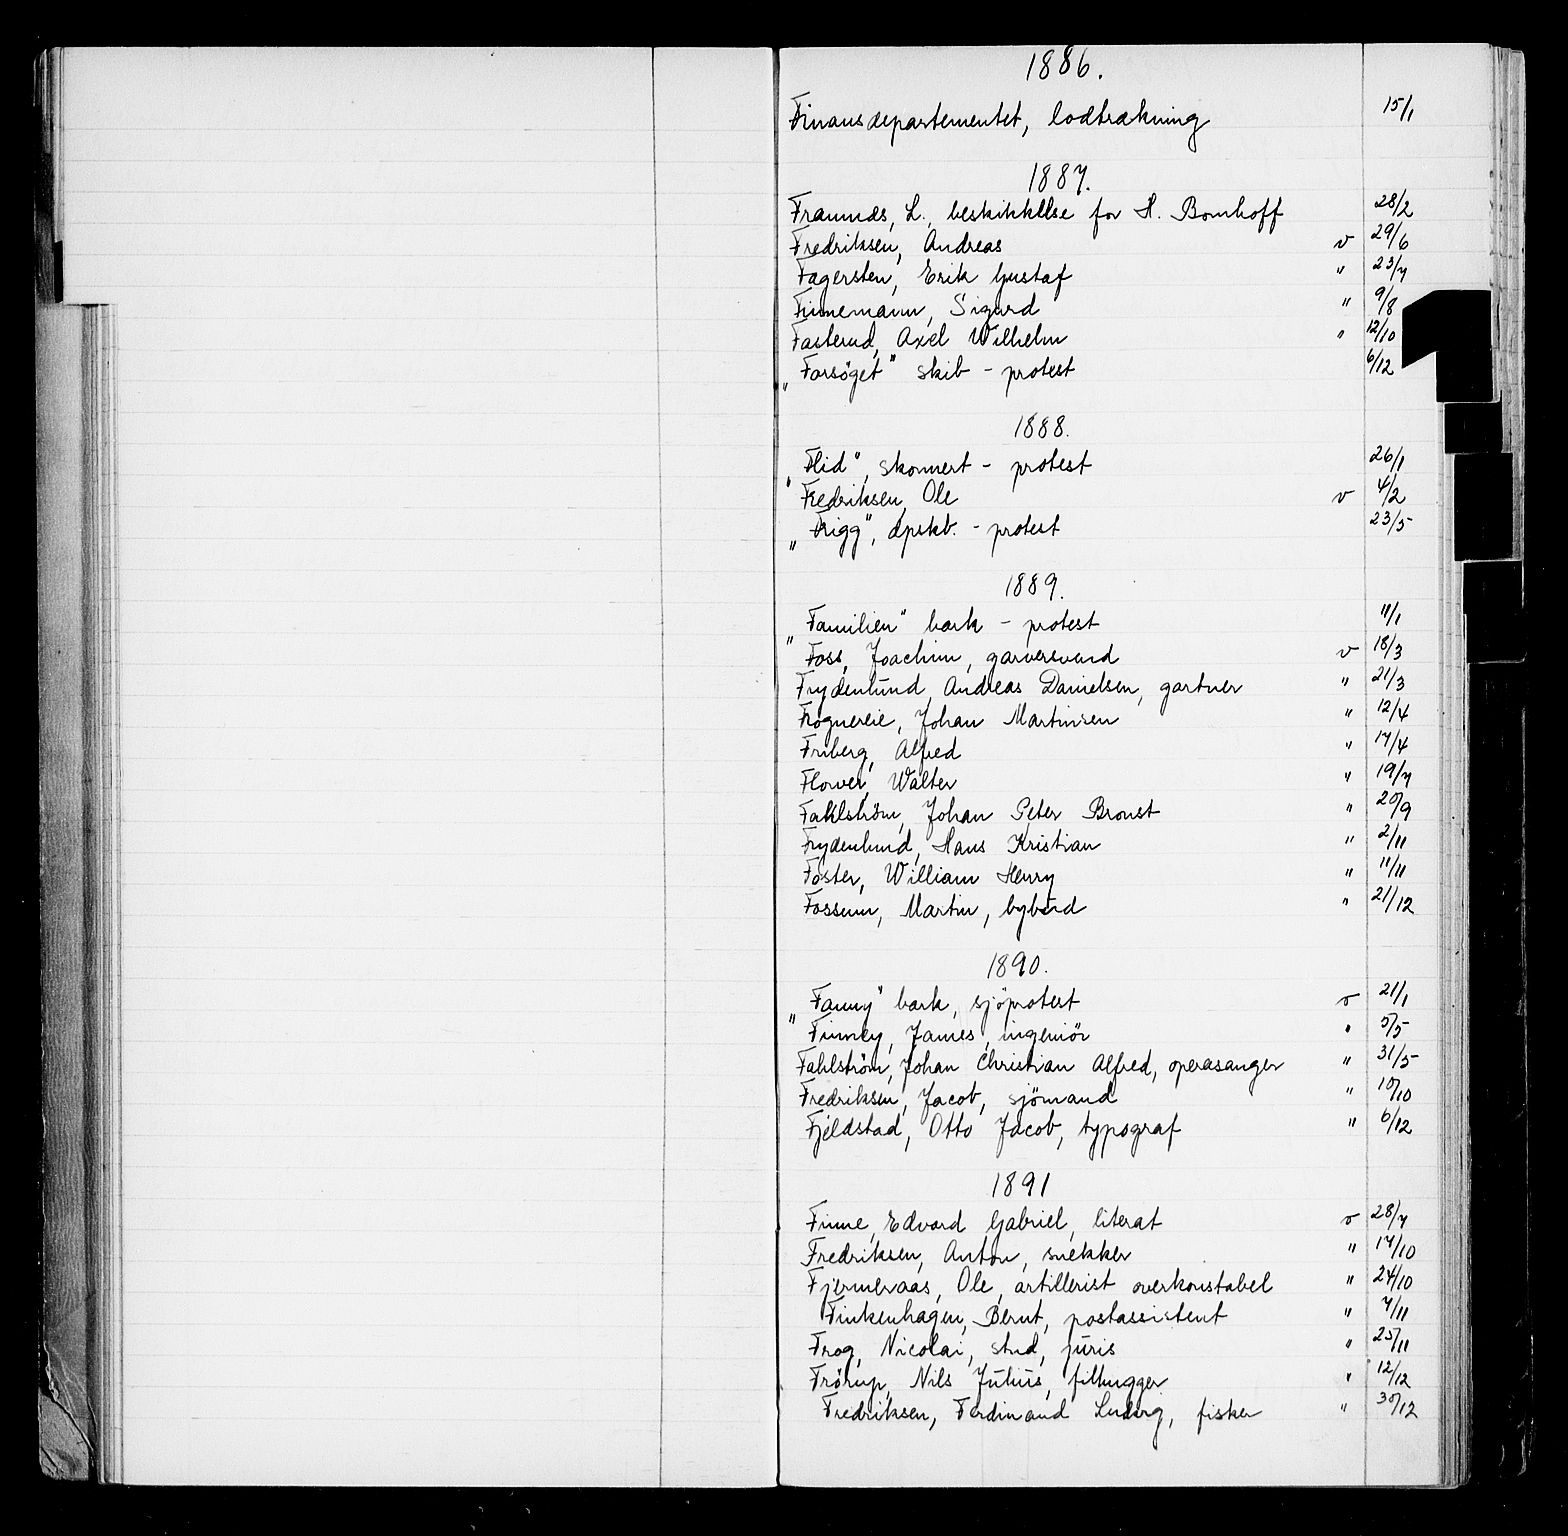 1886.
Finansdepartementet, lodtrækning 15/1
1887.
Framnæs, L., beskikkelse for H. Bomhoff 28/2
Fredriksen, Andreas v 29/6
Fagersten, Erik Gustaf " 23/7
Finnemann, Sigurd " 9/8
Fasterud, Axel Wilhelm " 12/10
„Forsøget" skib - protest 6/12
1888.
„Flid", skonnert - protest 26/1
Fredriksen, Ole v 4/2
„Frigg", dpskb. - protest 23/5
1889.
„Familien" bark - protest 11/1
Foss, Joachim, garversvend v 18/3
Frydenlund, Andreas Danielsen, gartner " 21/3
Frognereie, Johan Martinsen " 12/4
Friberg, Alfred " 17/4
Flower, Walter " 19/7
Fahlstrøm, Johan Peter Broust " 20/9
Frydenlund, Hans Kristian " 2/11
Foster, William Henry " 11/11
Fossum, Martin, bybud " 21/12
1890.
„Fanny" bark, sjøprotest v 21/1
Finney, James, ingeniør " 5/5
Fahlstrøm, Johan Christian Alfred, operasanger " 31/5
Fredriksen, Jacob, sjømand " 10/10
Fjeldstad, Otto Jacob, typograf " 6/12
1891
Finne, Edvard Gabriel, literat v 28/7
Fredriksen, Anton, snekker " 17/10
Fjermeraas, Ole, artillerist overkonstabel " 24/10
Finkenhagen, Bernt, postassistent " 7/11
Frog, Nicolai, stud, juris " 25/11
Frørup, Nils Julius, filhugger " 12/12
Fredriksen, Ferdinand Ludvig, fisker " 30/12